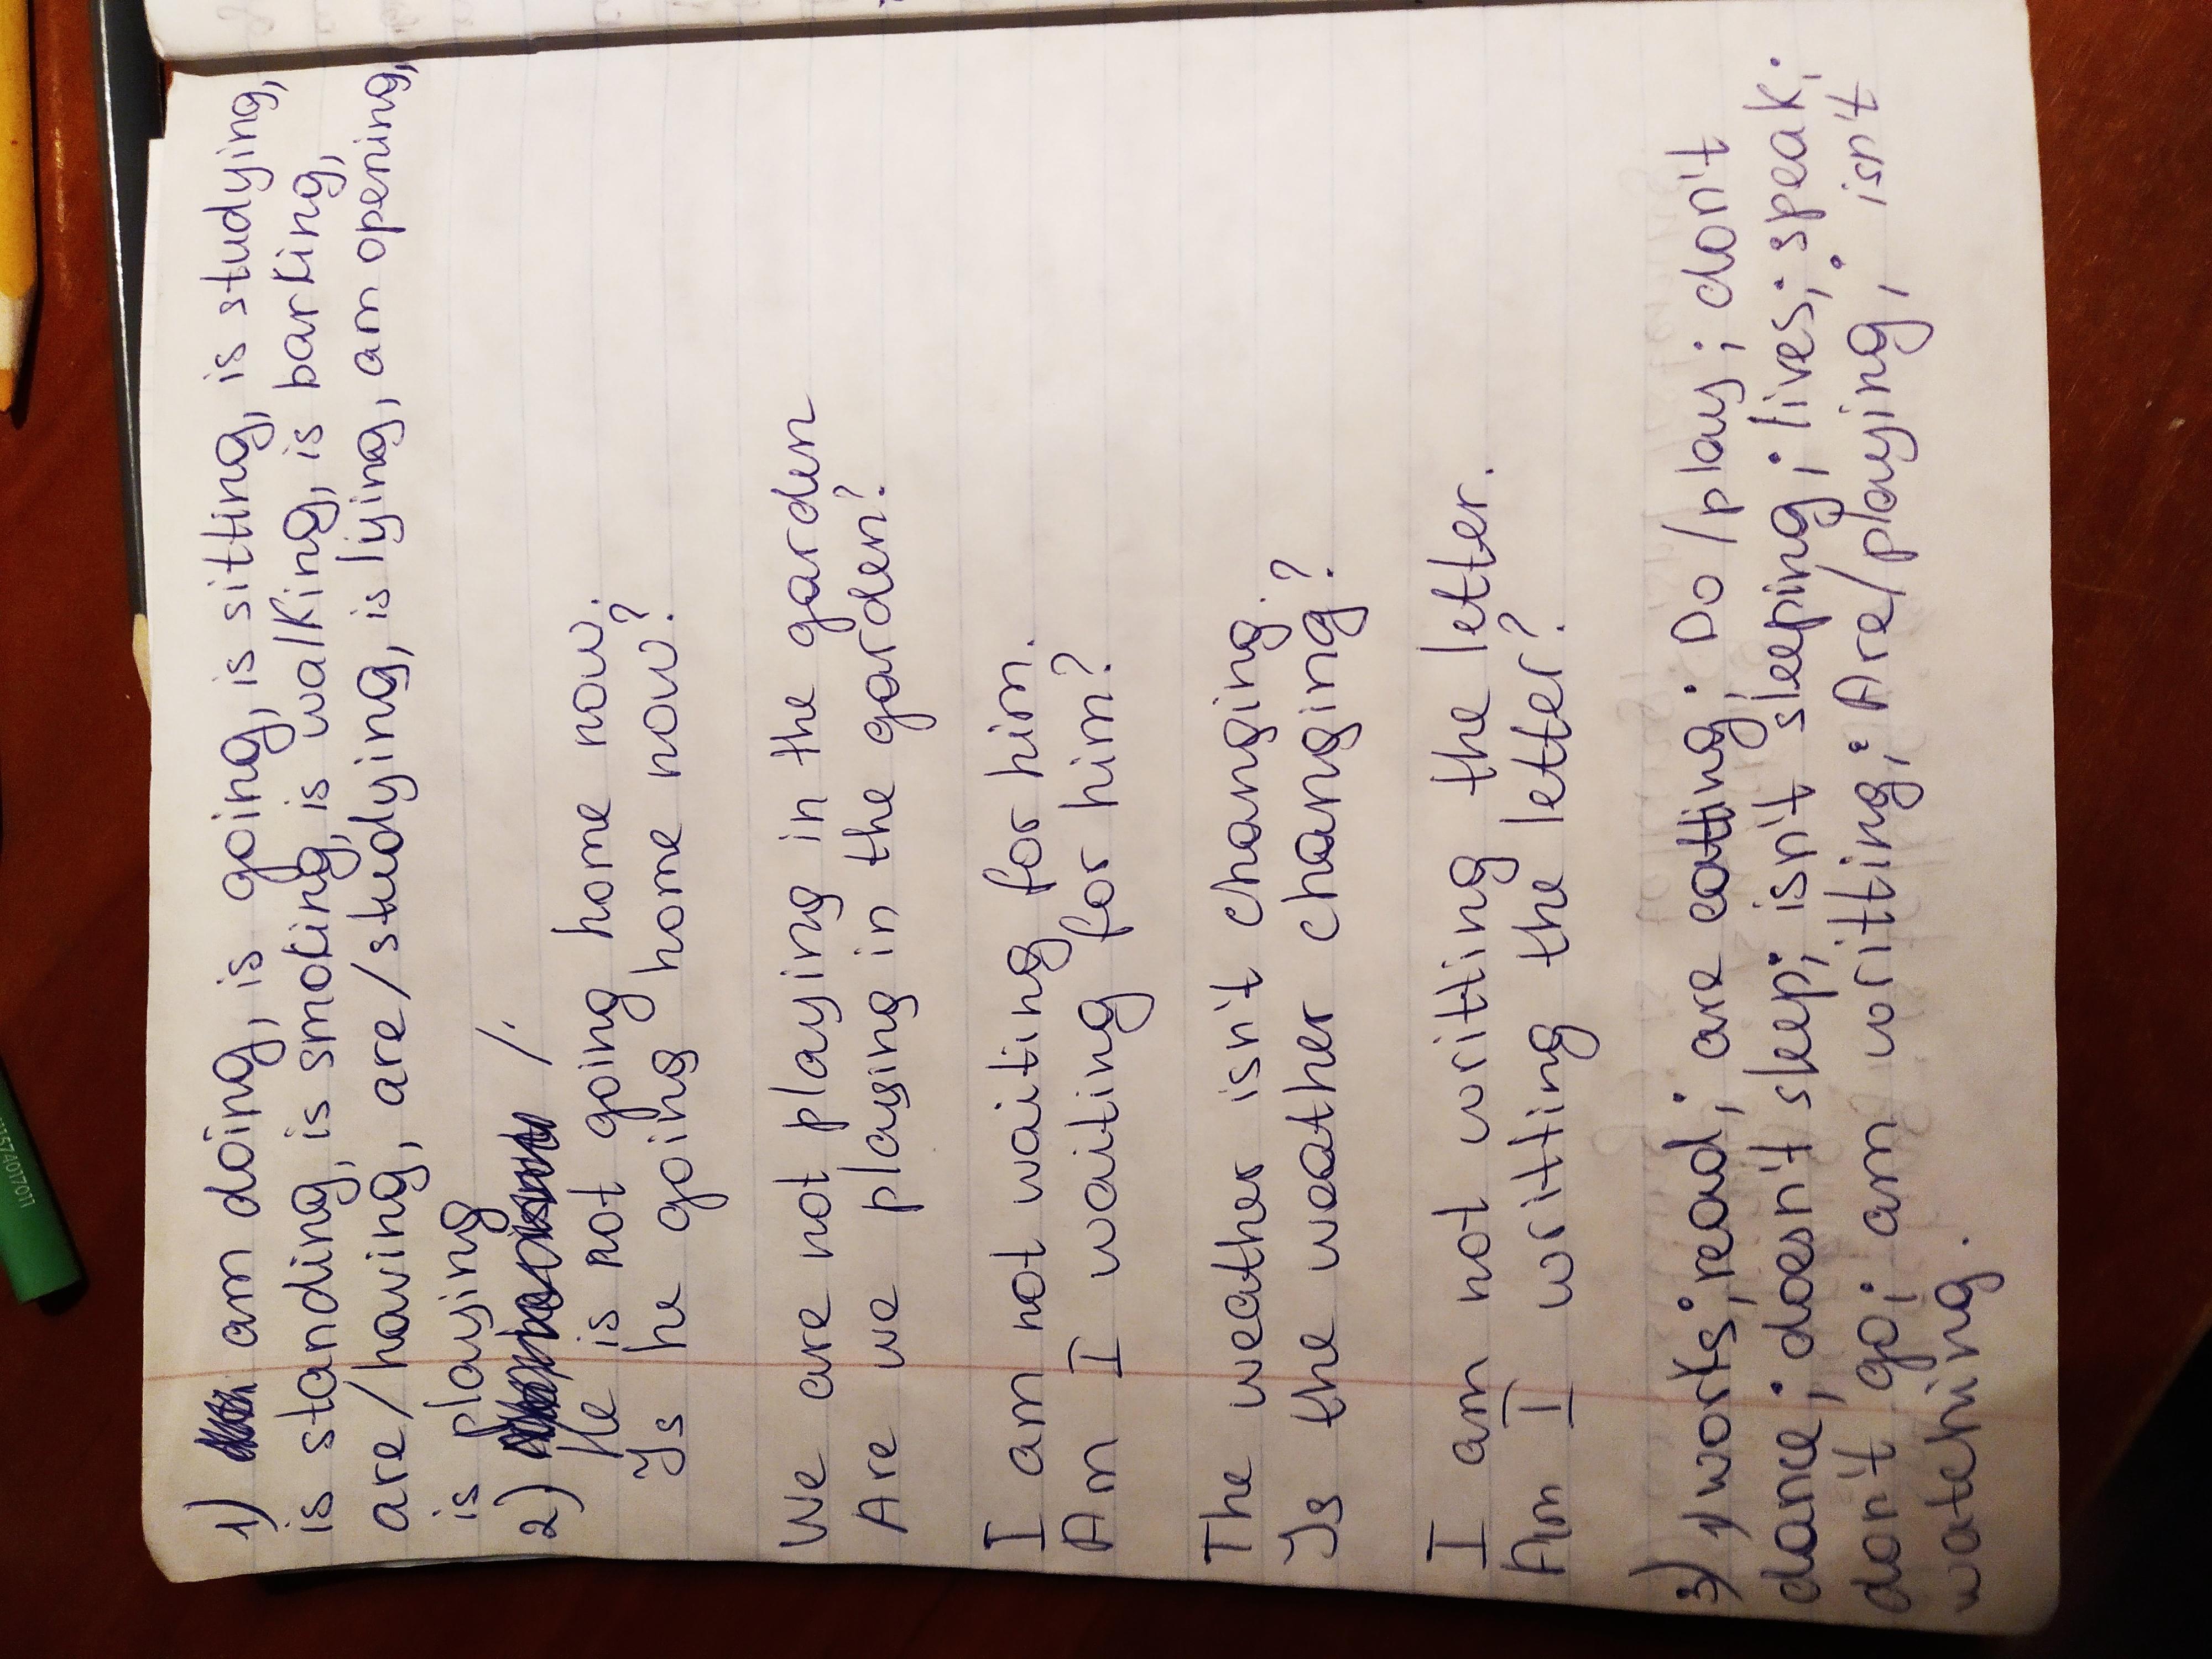 1) am doing, is going, is sitting, is studying,
is standing, is smoking, is walking, is barking,
are/having, are/studying, is lying, am opening,
is playing
2) /.
He is not going home now.
Is he going home now?
We are not playing in the garden
Are we playing in the garden?
I am not waiting for him.
Am I waiting for him?
The weather isn't changing.
Is the weather changing?
I am not writting the letter.
Am I writting the letter?
3) 1) works; read; are eatting; Do/play; don't
dance; doesn't sleep; isn't sleeping; lives; speak;
don't go; am writting; Are/playing, isn't
watching.